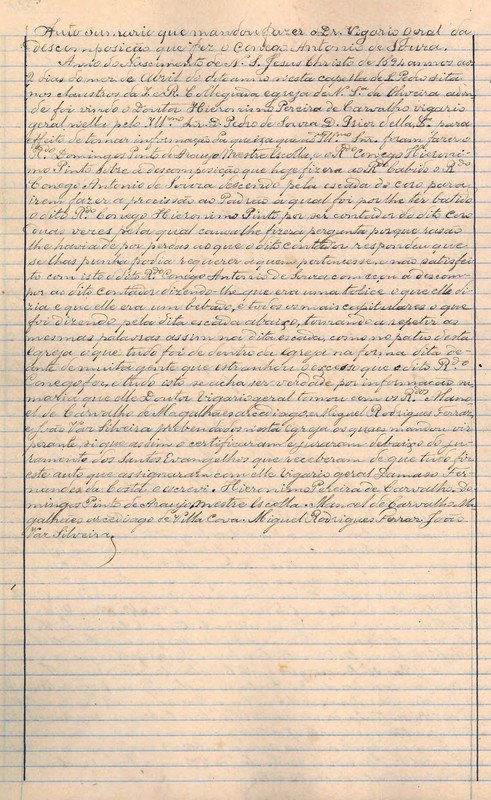 Auto sumario que mandou fazer o Dr. Vigario Geral da
descomposição que fez o Conego Antonio de Souza.
Anno do Nascimento de N. S. Jesus Christo de 1694 annos aos
9 dias do mez de Abril do dito anno nesta capella de S. Pedro sita
nos claustros da I. e R. Collegiada egreja de N. Sra. da Oliveira aon-
de foi vindo o Doutor Hieronimo Pereira de Carvalho vigario
geral nella pelo Illmo. Sr. D. Pedro de Souza D. Prior della, para
effeito de tomar informação da queixa que a S. Illma. Snr. foram fazer o
Rdo. Domingos Pinto de Araujo Mestre Escolla, e o Rdo. Conego Hieroni-
mo Pinto sobre a descomposição que hoje fizera ao R. Cabido o Rdo.
Conego Antonio de Souza descendo pela escada do coro para
irem fazer a procissão ao Padrão a qual foi por lhe ter batido
o dito Rdo. Conego Hieronimo Pinto por ser contador do dito coro
duas vezes pela qual causa lhe fizera pergunta porque rasão
lhe havia de por perdas ao que o dito contador respondeu que
se lhas punha podia requerer a quem pertencesse, e não satisfei-
to com isto o dito Rdo. Conego Antonio de Souza começou a descom-
por ao dito contador dizendo-lhe que era uma tolice o que elle di-
zia e que elle era um bebado, e todos os mais capitulares o que
foi dizendo pela dita escada abaixo, tornando a repetir as
mesmas palavras assim na dita escada, como no pateo desta
egreja o que tudo foi de dentro da egreja na forma dita de-
ante de muita gente que estranhou o excesso que o dito Rdo.
Conego fez, e tudo isto se acha ser verdade por informação su-
maria que elle Doutor Vigario geral tomou com os Rdos. Mano-
el de Carvalho de Magalhães arcediago, e Miguel Rodrigues Ferraz,
e João Vaz Silveira prebendados nesta egreja os quaes mandou vir
perante si que assim o certificaram e juraram debaixo do ju-
ramento dos Santos Evangelhos que receberam de que tudo fiz
este auto que assignaram com elle vigario geral Damaso Fer-
nandes da Costa o escrevi. Hieronimo Pereira de Carvalho. Do-
mingos Pinto de Araujo, mestre escolla. Manoel de Carvalho Ma-
galhães arcediago de Villa Cova. Miguel Rodrigues Ferraz. João
Vaz Silveira.